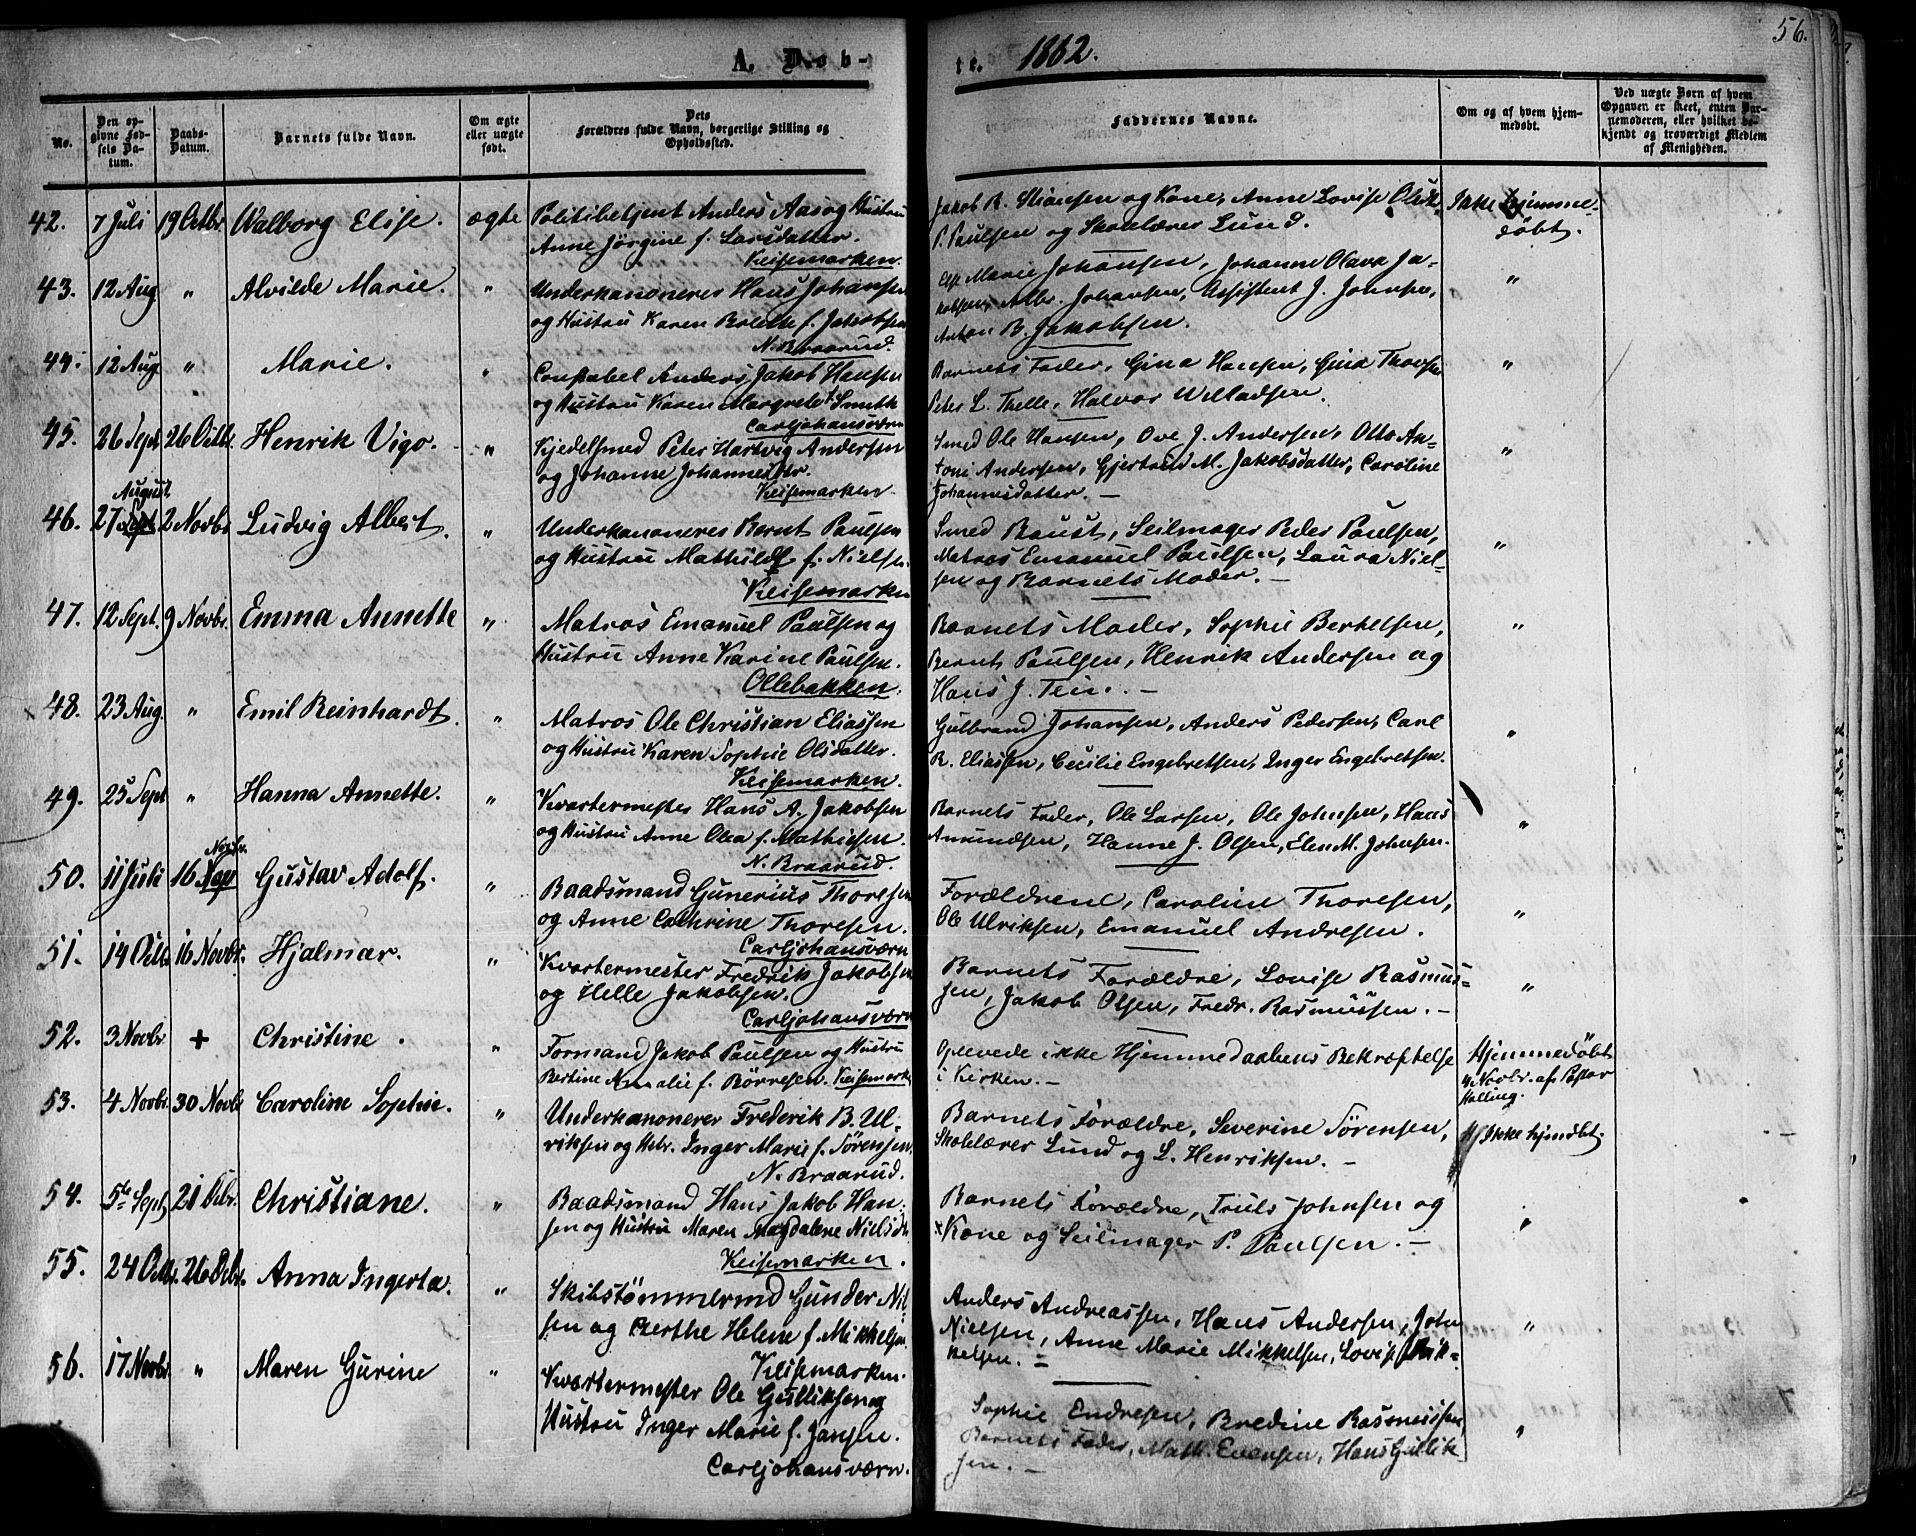 56.
A. Døb-
te. 1862.
No.
Den opgivne Fødsels Datum.
Daabs-Datum.
Barnets fulde Navn.
Om ægte eller uægte født.
Dets Forældres fulde Navn, borgerlige Stilling og Opholdssted.
Faddernes Navne.
Om og af hvem hjemmedøbt.
Ved uægte Børn af hvem Opgaven er skeet, enten Barnemoderen, eller hvilket bekjendt og troværdigt Medlem af Menigheden.
42. 7 Juli 19 Octbr. Walborg Elise. ægte
Politibetjent Anders Aas og Hustru
Anne Jörgine f. Larsdatter.
Keisemarken.
Jakob R. og Kone, Anne Lovise
P. Paulsen og Skolelærer Lund.
Ikke hjemme-
döbt.
43. 12 Aug " Alvilde Marie. "
Underkanoneres Hans Johansen
og Hustru Karen Bolette f. Jakobsen
N. Braarud.
Marie Johansen, Johanne Olava Ja-
kobsen, Albr. Johansen, Assistent J. Johnsen,
Anton B. Jakobsen.
"
44. 12 Aug " Marie. "
Constabel Anders Jakob Hansen
og Hustru Karen Margrete f. Smith
Carljohansværn
Barnets Fader, Gina Hansen, Gina Thorsen
Peter L. Thelle, Halvor Willadsen.
"
45. 26 Sept 26 Octbr. Henrik Vigo. "
Kjedelsmed Peter Hartvig Andersen
og Johanne Johannesdtr.
Keisemarken.
Smed Ole Hansen, Ove J. Andersen, Otto An-
toni Andersen, Gjertrud M. Jakobsdatter, Caroline
Johannesdatter. —
"
46. 27 August Sept 2 Novbr. Ludvig Albert. "
Underkanoneres Bernt Paulsen
og Hustru Mathilde f. Nielsen.
Keisemarken
Smed Baust, Seilmager Peder Paulsen,
Matros Emanuel Paulsen, Laura Niel-
sen og Barnets Moder. —
"
47. 12 Sept. 9 Novbr. Emma Annette "
Matros Emanuel Paulsen og
Hustru Anne Karine Paulsen.
Ollebakken.
Barnets Moder, Sophie Berkelsen,
Bernt Paulsen, Henrik Andersen og
Hans J. Tein. —
"
48. 23 Aug. " Emil Reinhardt. "
Matros Ole Christian Eliassen
og Hustru Karen Sophie Olsdatter.
Keisemarken.
Gulbrand Johansen, Anders Pedersen, Carl
R. Eliassen, Cecilie Engebretsen, Inger Engebretsen.
"
49. 25 Sept " Hanna Annette. "
Kvartermester Hans A. Jakobsen
og Hustru Anne Olea f. Mathiesen.
N. Braarud.
Barnets Fader, Ole Larsen, Ole Johnsen, Hans
Amundsen, Hanne J. Olsen, Elen M. Johnsen.
"
50. 11 Juli 16 Novbr. Gustav Adolf. "
Baadsmand Gunerius Thoresen
og Anne Cathrine Thoresen.
Carljohansværn
Forældrene, Caroline Thoresen,
Ole Ulriksen, Emanuel Andresen.
"
51. 14 Octbr. 16 Novbr. Hjalmar. "
Kvartermester Fredrik Jakobsen
og Helle Jakobsen.
Carljohansværn
Barnets Forældre, Lovise Rasmus-
sen, Jakob Olsen, Fredr. Rasmussen. —
"
52. 3 Novbr + Christine. "
Formand Jakob Paulsen og Hustru
Bertine Amalie f. Börresen. Keisemark.
Oplevede ikke Hjemmedaabens Bekræftelse
i Kirken. —
Hjemmedöbt
4 Novbr. af Pastor
Halling.
53. 4 Novbr. 30 Novbr Caroline Sophie. "
Underkanonerer Frederik B. Ul-
riksen og Hstr. Inger Marie f. Sörensen.
N. Braarud.
Barnets Forældre, Severine Sörensen,
Skolelærer Lund og L. Henriksen. —
Ikke hjmdbt.
54. 5te Sept 21 Dcbr. Christiane. "
Baadsmand Hans Jakob Han-
sen og Hustru Maren Magdalene Nielsdtr
Keisemarken.
Barnets Forældre, Truls Johnsen og
Kone og Seilmager P. Paulsen. —
"
55. 24 Octbr. 26 Dcbr. Anna Ingerta. "
Skibstömmermd Gunder Niel
sen og Berthe Helene f. Mikkelsen
Keisemarken.
Anders Andreassen, Hans Andersen, John
Nielsen, Anne Marie Mikkelsen, Lovise Mik-
kelsen. —
"
56. 17 Novbr " Maren Gurine "
Kvartermester Ole Gulliksen og
Hustru Inger Marie f. Jansen.
Carljohansværn.
Sophie Endresen, Bredine Rasmussen,
Barnets Fader, Math. Evensen, Hans Gullik
sen. —
"